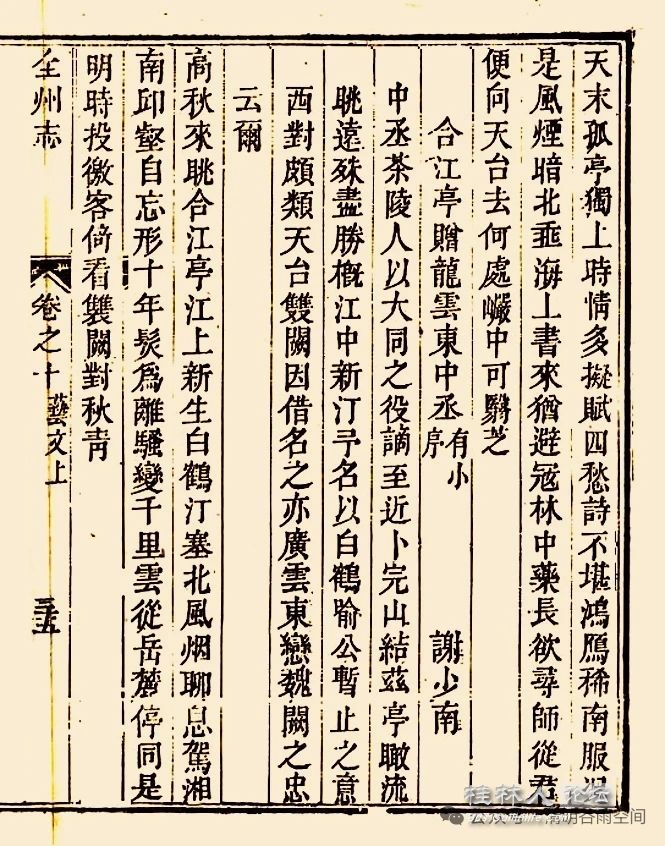 天末孤亭獨上時情多擬賦四愁詩不堪鴻鴈稀南服況
是風煙暗北垂海上書來猶避冦林中藥長欲尋師從君
便向天台去何處巗中可斸芝
合江亭贈龍雲東中丞有小序 謝少南
中丞茶陵人以大同之役謫至近卜完山結茲亭瞰流
眺遠殊盡勝槪江中新汀予名以白鶴喻公暫止之意
西對頗類天台雙闕因借名之亦廣雲東戀魏闕之忠
云爾
高秋來眺合江亭江上新生白鶴汀塞北風烟聊息駕湘
南邱壑自忘形十年髮爲離騷變千里雲從岳麓停同是
明時投徼客倚看雙闕對秋靑
全州志 卷之十 藝文上 三十五
桂林人论坛